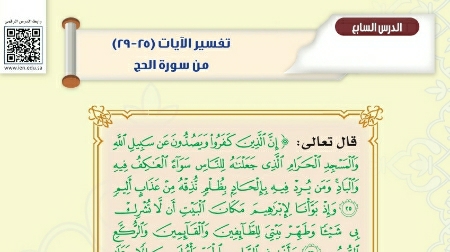 رابط الدرس الرقمي
www.ien.edu.sa
الدرس السابع
تفسير الآيات (٢٥-٢٩)
من سورة الحج
قال تعالى: ﴿ إِنَّ الَّذِينَ كَفَرُوا وَيَصُدُّونَ عَن سَبِيلِ اللَّهِ
وَالْمَسْجِدِ الْحَرَامِ الَّذِي جَعَلْنَاهُ لِلنَّاسِ سَوَاءً الْعَاكِفُ فِيهِ
وَالْبَادِ وَمَن يُرِدْ فِيهِ بِإِلْحَادٍ بِظُلْمٍ نُّذِقْهُ مِنْ عَذَابٍ أَلِيمٍ
٢٥ وَإِذْ بَوَّأْنَا لِإِبْرَاهِيمَ مَكَانَ الْبَيْتِ أَن لَّا تُشْرِكْ
بِي شَيْئًا وَطَهِّرْ بَيْتِيَ لِلطَّائِفِينَ وَالْقَائِمِينَ وَالرُّكَّعِ